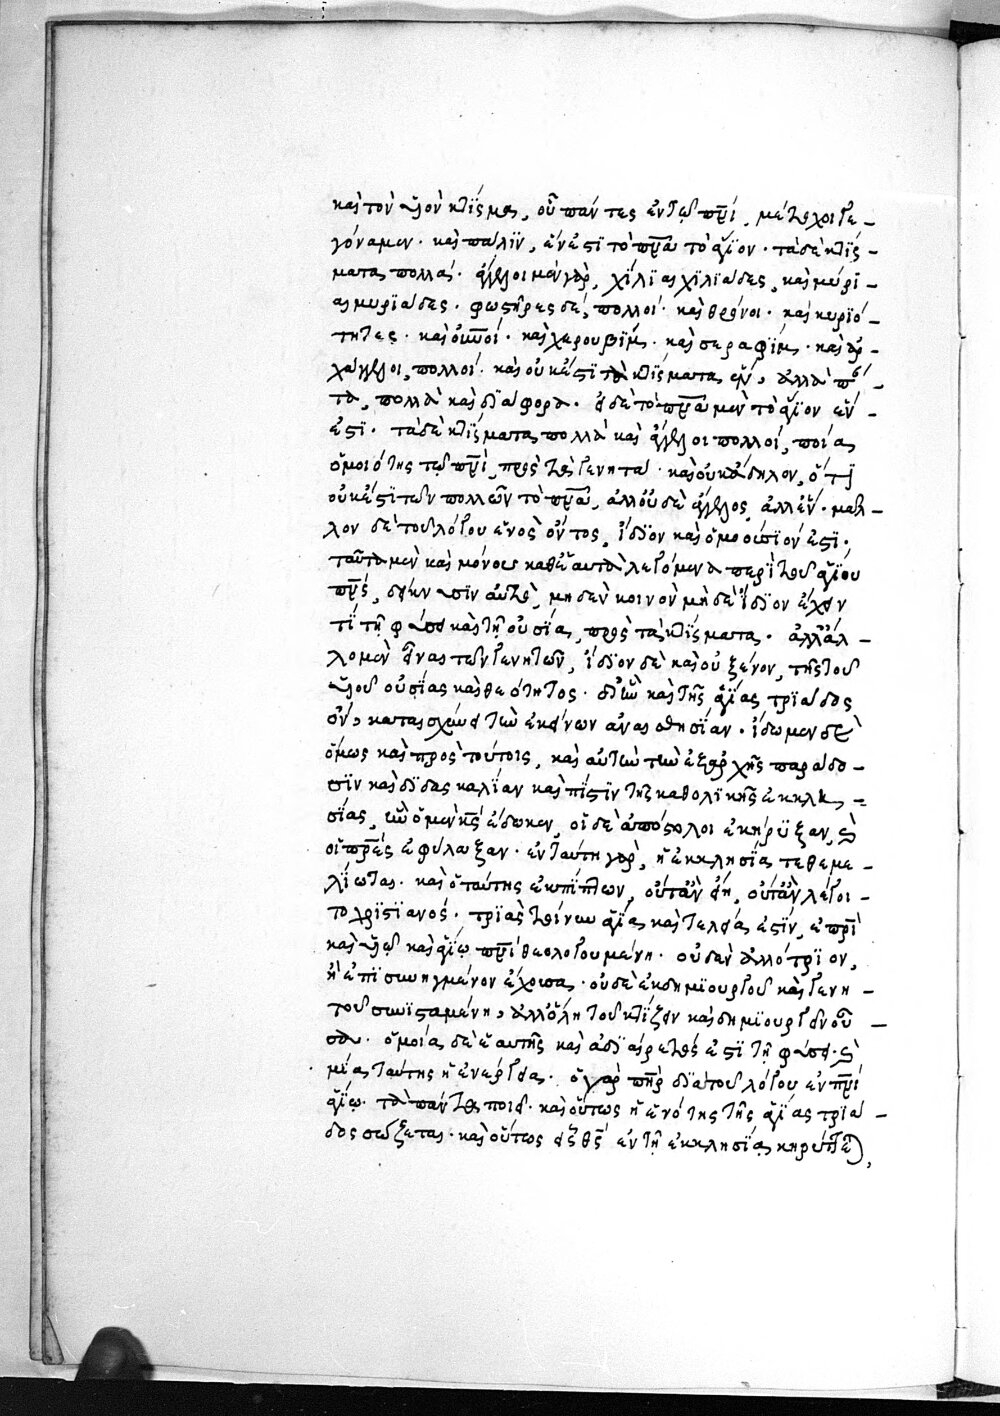 καὶ τὸν υἱὸν κτίσμα, οὗ πάντες ἐν τῷ πνι, μέτοχοι γε-
γόναμεν· καὶ πάλιν, ἕν ἐστι τὸ πνα τὸ ἅγιον· τὰ δὲ κτίσ-
ματα πολλά· ἄγγελοι μὲν γὰρ, χίλιαι χιλιάδες, καὶ μύρι-
αι μυριάδες· φωστῆρες δὲ, πολλοί· καὶ θρόνοι· καὶ κυριό-
τητες· καὶ οὐνοί· καὶ χερουβίμ· καὶ σεραφίμ· καὶ ἀρ-
χάγγελοι, πολλοί· καὶ οὐκ ἔστι τὰ κτίσματα ἕν, ἀλλὰ πάν-
τα, πολλὰ καὶ διάφορα· εἰ δὲ τὸ πνα μὲν τὸ ἅγιον ἕν
ἐστι· τὰ δὲ κτίσματα πολλὰ καὶ ἄγγελοι πολλοί, ποία
ὁμοιότης τῷ πνι, πρὸς τὰ γενητά· καὶ οὐκ ἄδηλον, ὅτι
οὐκ ἔστι τῶν πολλῶν τὸ πνα, ἀλλ' οὐδὲ ἄγγελος, ἀλλ' ἕν· μᾶλ-
λον δὲ τοῦ λόγου ἑνὸς ὄντος, ἴδιον καὶ ὁμοούσιόν ἐστι·
ταῦτα μὲν καὶ μόνως καθ' ἑαυτὰ λεγόμενα περὶ τοῦ ἁγίου
πνς, δείκνυσιν αὐτὸ, μηδὲν κοινὸν μηδὲ ἴδιον ἔχειν
τι τῇ φύσει καὶ τῇ οὐσίᾳ, πρὸς τὰ κτίσματα· ἀλλ' ἄλ-
λο μὲν εἶναι τῶν γενητῶν, ἴδιον δὲ καὶ οὐ ξένον, τῆς τοῦ
υἱοῦ οὐσίας καὶ θεότητος· δι' ἣν καὶ τῆς ἁγίας τριάδος
ὂν, καταισχύνει τὴν ἐκείνων ἀναισθησίαν· ἴδωμεν δὲ
ὅμως καὶ πρὸς τούτοις, καὶ αὐτὴν τὴν ἐξ ἀρχῆς παράδο-
σιν καὶ διδασκαλίαν καὶ πίστιν τῆς καθολικῆς ἐκκλη-
σίας, ἣν ὁ μὲν κς ἔδωκεν, οἱ δὲ ἀπόστολοι ἐκήρυξαν, καὶ
οἱ πρες ἐφύλαξαν· ἐν ταύτῃ γὰρ, ἡ ἐκκλησία τεθεμε-
λίωται· καὶ ὁ ταύτης ἐκπίπτων, οὔτ' ἂν εἴη, οὔτ' ἂν λέγοι-
το χριστιανός· τριὰς τοίνυν ἁγία καὶ τελεία ἐστὶν, ἐν πρὶ
καὶ υἱῷ καὶ ἁγίῳ πνι θεολογουμένη· οὐδὲν ἀλλότριον,
ἢ ἐπισυνηγμένον ἔχουσα· οὐδὲ ἐκ δημιουργοῦ καὶ γενη-
τοῦ συνισταμένη, ἀλλ' ὅλη τοῦ κτίζειν καὶ δημιουργεῖν οὖ-
σα· ὁμοία δὲ ἑαυτῆς καὶ ἀδιαίρετός ἐστι τῇ φύσει· καὶ
μία ταύτης ἡ ἐνέργεια· ὁ γὰρ πηρ διὰ τοῦ λόγου ἐν πνι
ἁγίῳ· τὰ πάντα ποιεῖ· καὶ οὕτως ἡ ἑνότης τῆς ἁγίας τριά-
δος σώζεται· καὶ οὕτως εἷς θς ἐν τῇ ἐκκλησίᾳ κηρύττεται,